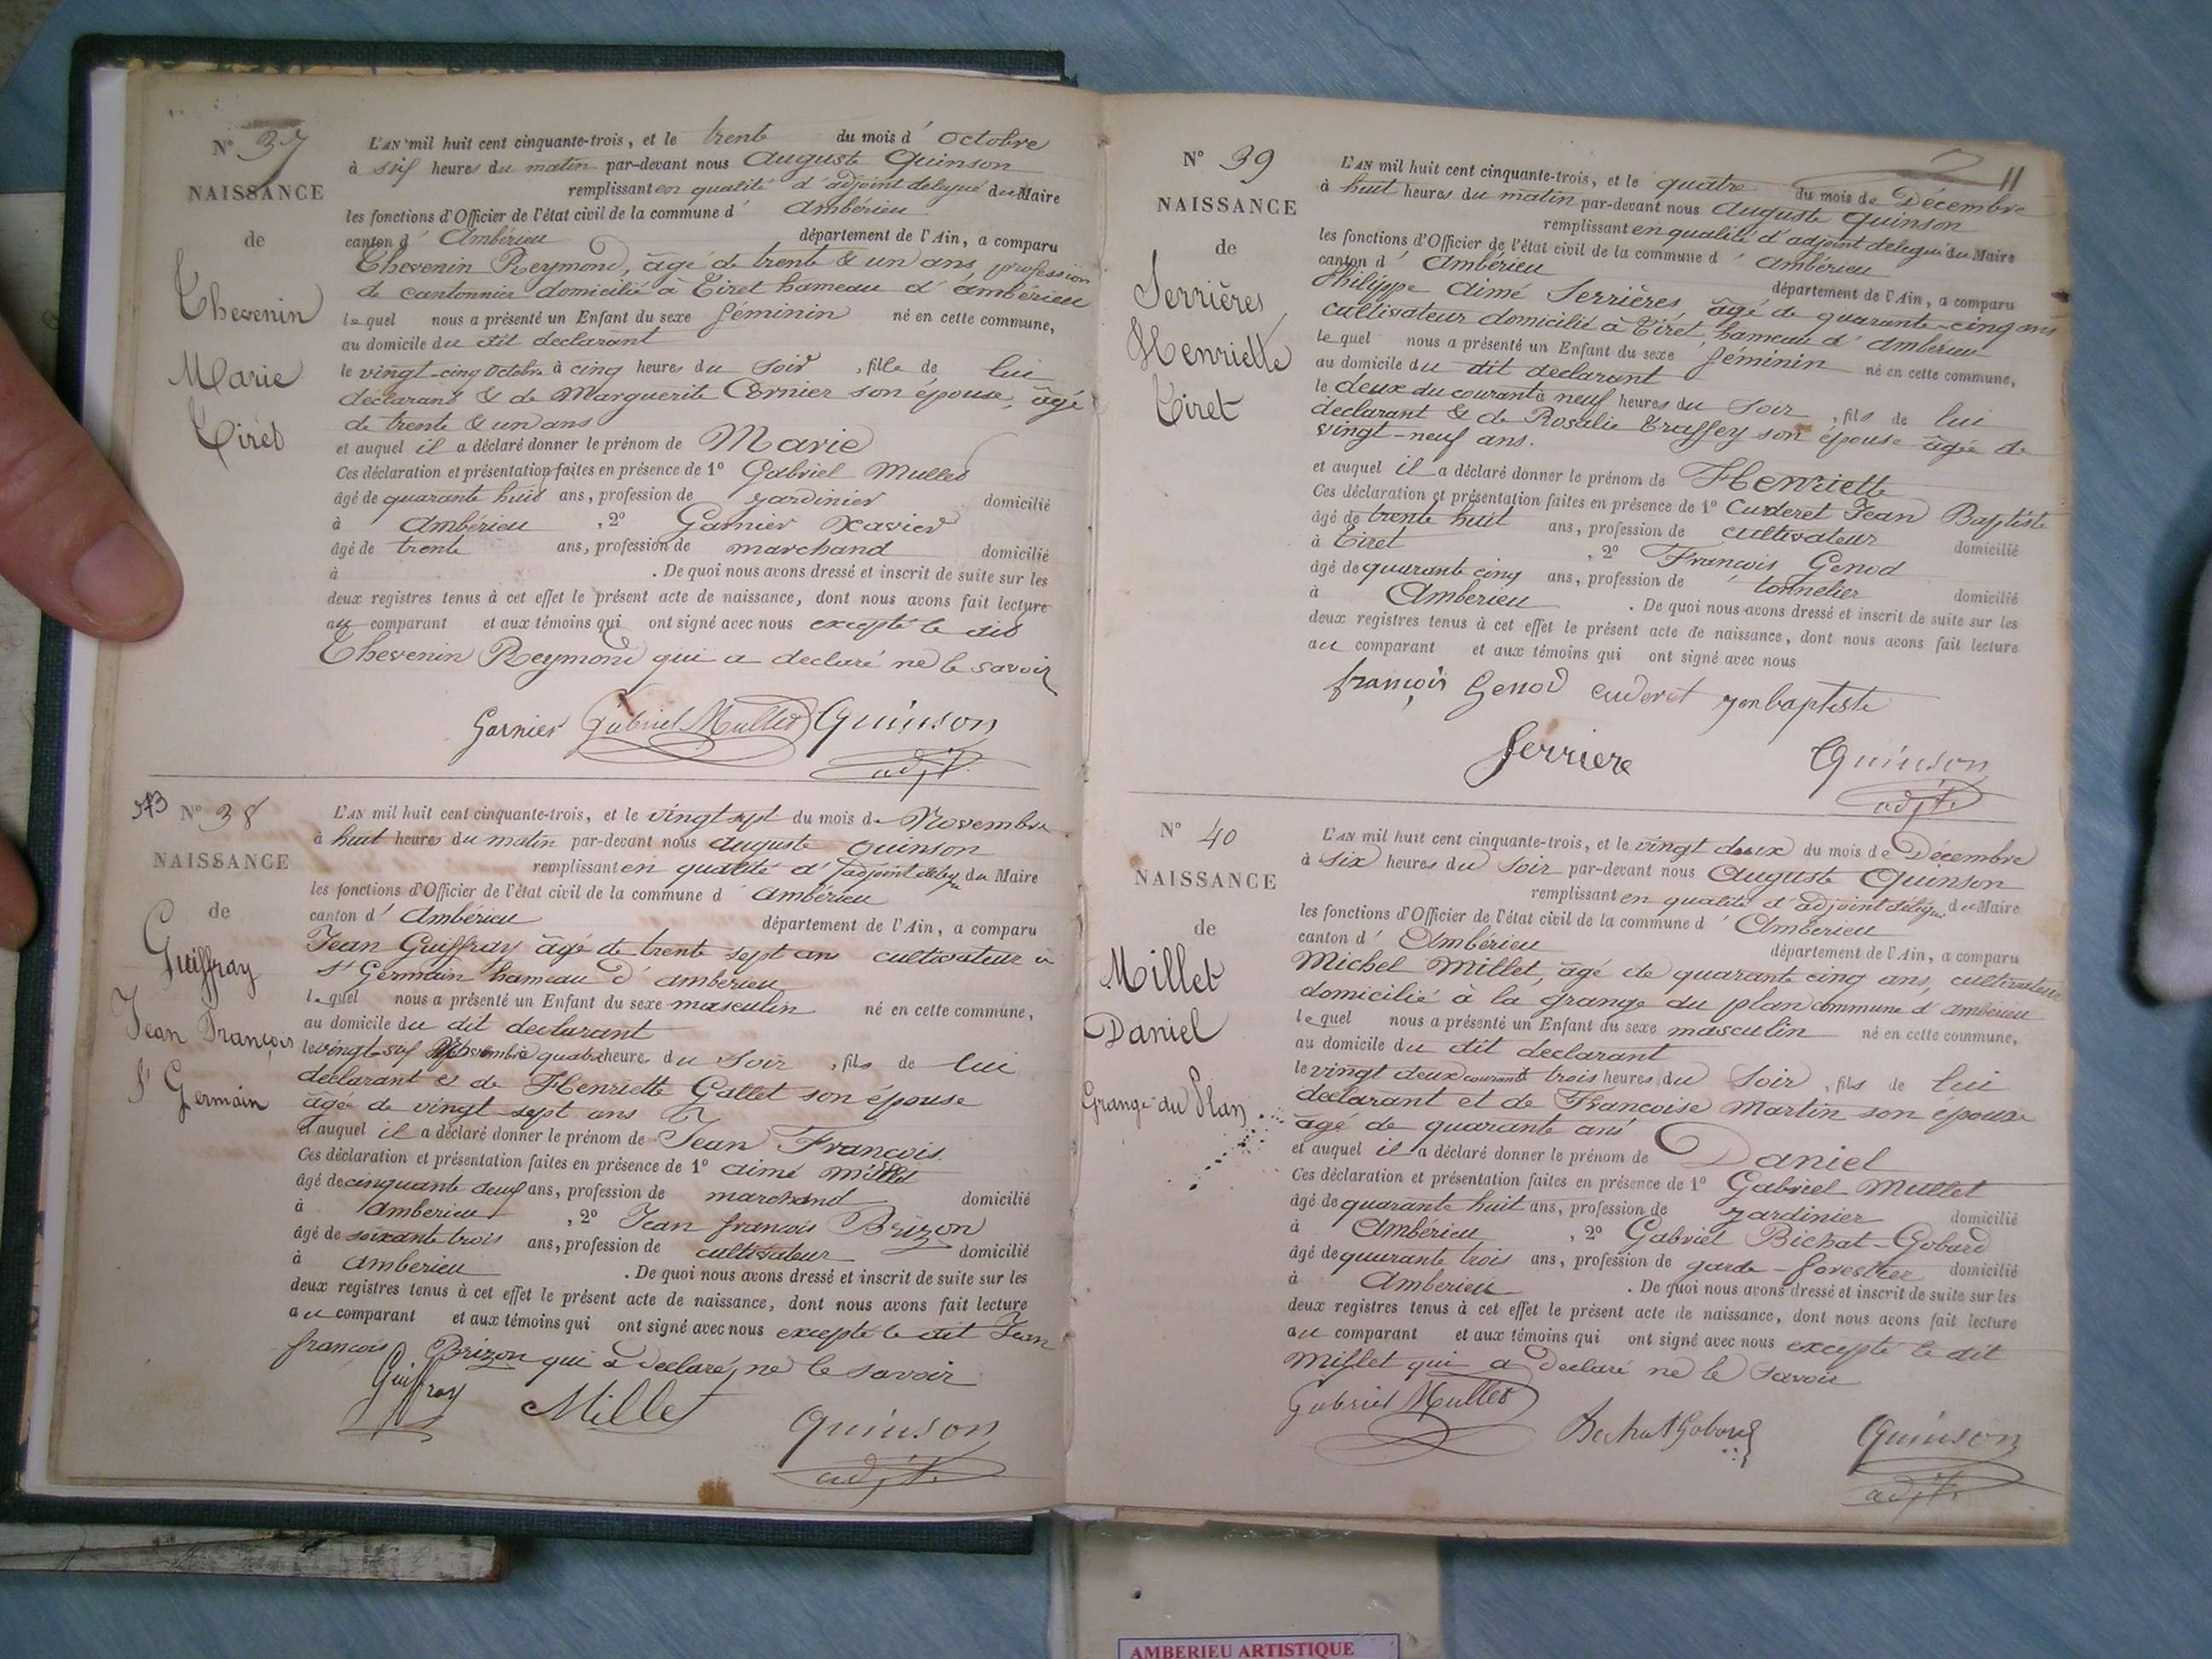 N° 37
NAISSANCE
de
Thevenin
Marie
Tiret
L'AN mil huit cent cinquante-trois, et le trente du mois d' Octobre
à six heures du matin par-devant nous Auguste Quinson
remplissant en qualité d'adjoint delegué du Maire
les fonctions d'Officier de l'état civil de la commune d' Ambérieu
canton d' Ambérieu département de l'Ain, a comparu
Thevenin Reymond, âgé de trente & un ans, profession
de cantonnier domicilié à Tiret hameau d'ambérieu
lequel nous a présenté un Enfant du sexe féminin né en cette commune,
au domicile du dit declarant
le vingt-cinq Octobre à cinq heures du Soir, fille de lui
declarant & de Marguerite Cornier son épouse, âgé
de trente & un ans
et auquel il a déclaré donner le prénom de Marie
Ces déclaration et présentation faites en présence de 1° Gabriel Mullet
âgé de quarante huit ans, profession de jardinier domicilié
à Ambérieu, 2° Garnier Xavier
âgé de trente ans, profession de marchand domicilié
à . De quoi nous avons dressé et inscrit de suite sur les
deux registres tenus à cet effet le présent acte de naissance, dont nous avons fait lecture
au comparant et aux témoins qui ont signé avec nous excepté le dit
Thevenin Reymond qui a declaré ne le savoir
Garnier Gabriel Mullet Quinson
adjt.
N° 38
NAISSANCE
de
Guiffray
Jean François
St Germain
L'AN mil huit cent cinquante-trois, et le vingt sept du mois de Novembre
à huit heures du matin par-devant nous auguste quinson
remplissant en qualité d'adjoint delegué du Maire
les fonctions d'Officier de l'état civil de la commune d' ambérieu
canton d' Ambérieu département de l'Ain, a comparu
Jean Guiffray âgé de trente sept ans cultivateur a
St Germain hameau d'ambérieu
lequel nous a présenté un Enfant du sexe masculin né en cette commune,
au domicile du dit declarant
le vingt-six Novembre quatre heures du Soir, fils de lui
declarant et de Henriette Gallet son épouse
âgé de vingt sept ans
et auquel il a déclaré donner le prénom de Jean François
Ces déclaration et présentation faites en présence de 1° aimé Millet
âgé de cinquante deux ans, profession de marchand domicilié
à ambérieu, 2° Jean françois Brizon
âgé de soixante trois ans, profession de cultivateur domicilié
à amberieu. De quoi nous avons dressé et inscrit de suite sur les
deux registres tenus à cet effet le présent acte de naissance, dont nous avons fait lecture
au comparant et aux témoins qui ont signé avec nous excepté le dit Jean
françois Brizon qui a declaré ne le savoir
Guiffray Millet Quinson
adjt.
11
N° 39
NAISSANCE
de
Serrières
Henriette
Tiret
L'AN mil huit cent cinquante-trois, et le quatre du mois de Décembre
à huit heures du matin par-devant nous Auguste Quinson
remplissant en qualité d'adjoint delegué du Maire
les fonctions d'Officier de l'état civil de la commune d' Ambérieu
canton d' Ambérieu département de l'Ain, a comparu
Philippe Aimé Serrières, âgé de quarante-cinq ans
cultivateur domicilié à Tiret, hameau d'ambérieu
lequel nous a présenté un Enfant du sexe féminin né en cette commune,
au domicile du dit declarant
le deux du courant à neuf heures du Soir, fils de lui
declarant & de Rosalie Traffey son épouse âgée de
vingt-neuf ans.
et auquel il a déclaré donner le prénom de Henriette
Ces déclaration et présentation faites en présence de 1° Cuderet Jean Baptiste
âgé de trente huit ans, profession de cultivateur domicilié
à Tiret, 2° François Genod
âgé de quarante cinq ans, profession de tonnelier domicilié
à Amberieu. De quoi nous avons dressé et inscrit de suite sur les
deux registres tenus à cet effet le présent acte de naissance, dont nous avons fait lecture
au comparant et aux témoins qui ont signé avec nous
françois Genod cuderet jenbaptiste
Serriere Quinson
adjt.
N° 40
NAISSANCE
de
Millet
Daniel
Grange du Plan
L'AN mil huit cent cinquante-trois, et le vingt deux du mois de Décembre
à six heures du Soir par-devant nous Auguste Quinson
remplissant en qualité d'adjoint délégué du Maire
les fonctions d'Officier de l'état civil de la commune d' Ambérieu
canton d' Ambérieu département de l'Ain, a comparu
Michel Millet, âgé de quarante cinq ans, cultivateur
domicilié à la grange du plan commune d'ambérieu
lequel nous a présenté un Enfant du sexe masculin né en cette commune,
au domicile du dit declarant
le vingt deux courant à trois heures du Soir, fils de lui
declarant et de Françoise Martin son épouse
âgé de quarante ans
et auquel il a déclaré donner le prénom de Daniel
Ces déclaration et présentation faites en présence de 1° Gabriel Mullet
âgé de quarante huit ans, profession de jardinier domicilié
à Ambérieu, 2° Gabriel Bichat-Gobard
âgé de quarante trois ans, profession de garde-forestier domicilié
à Amberieu. De quoi nous avons dressé et inscrit de suite sur les
deux registres tenus à cet effet le présent acte de naissance, dont nous avons fait lecture
au comparant et aux témoins qui ont signé avec nous excepté le dit
Millet qui a declaré ne le savoir
Gabriel Mullet BichatGobard Quinson
adjt.
AMBERIEU ARTISTIQUE